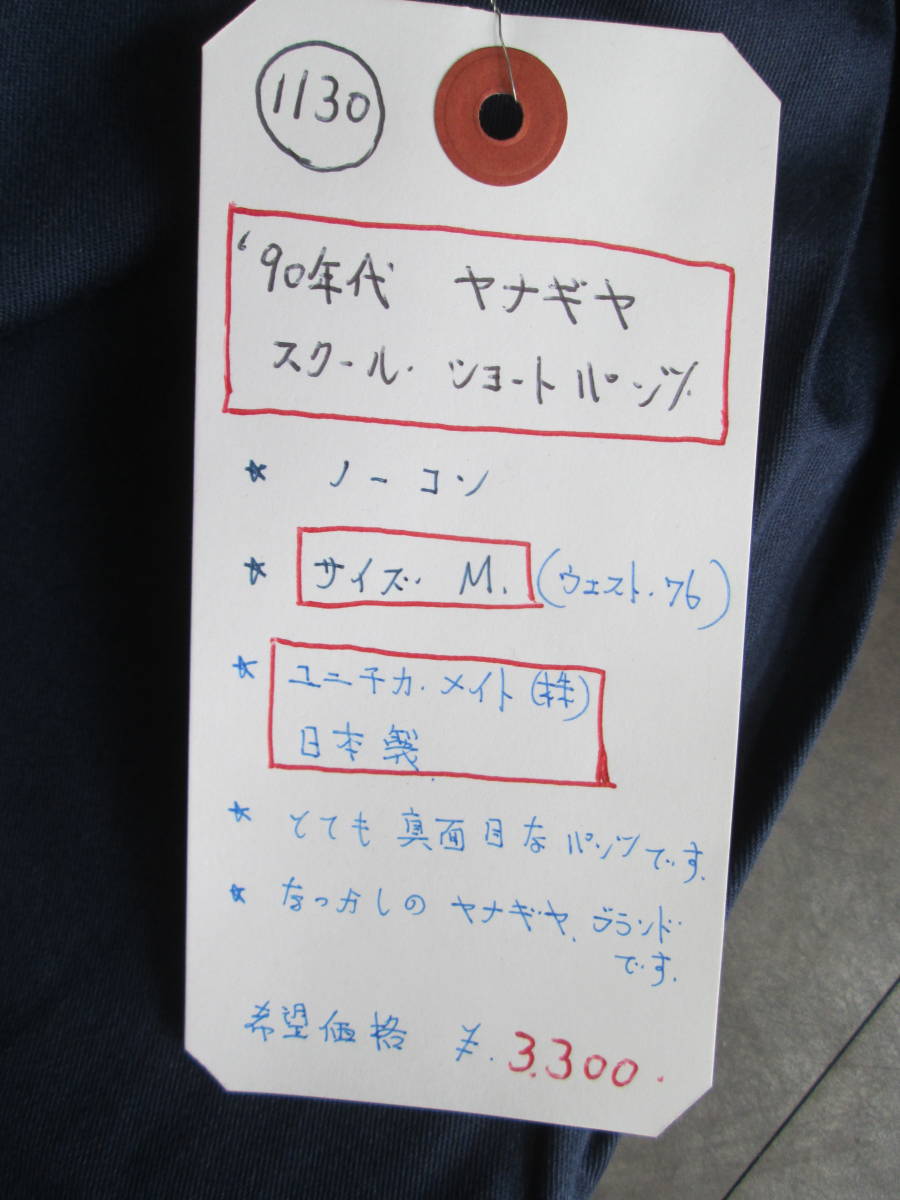 1130
'90年代 ヤナギヤ
スクール・ショートパンツ
★ ノーコン
★ サイズ M. (ウェスト・76)
★ ユニチカ・メイト(株)
日本製
★ とても真面目なパンツです.
★ なつかしの ヤナギヤ. ブランド
です.
希望価格 ¥. 3.300.